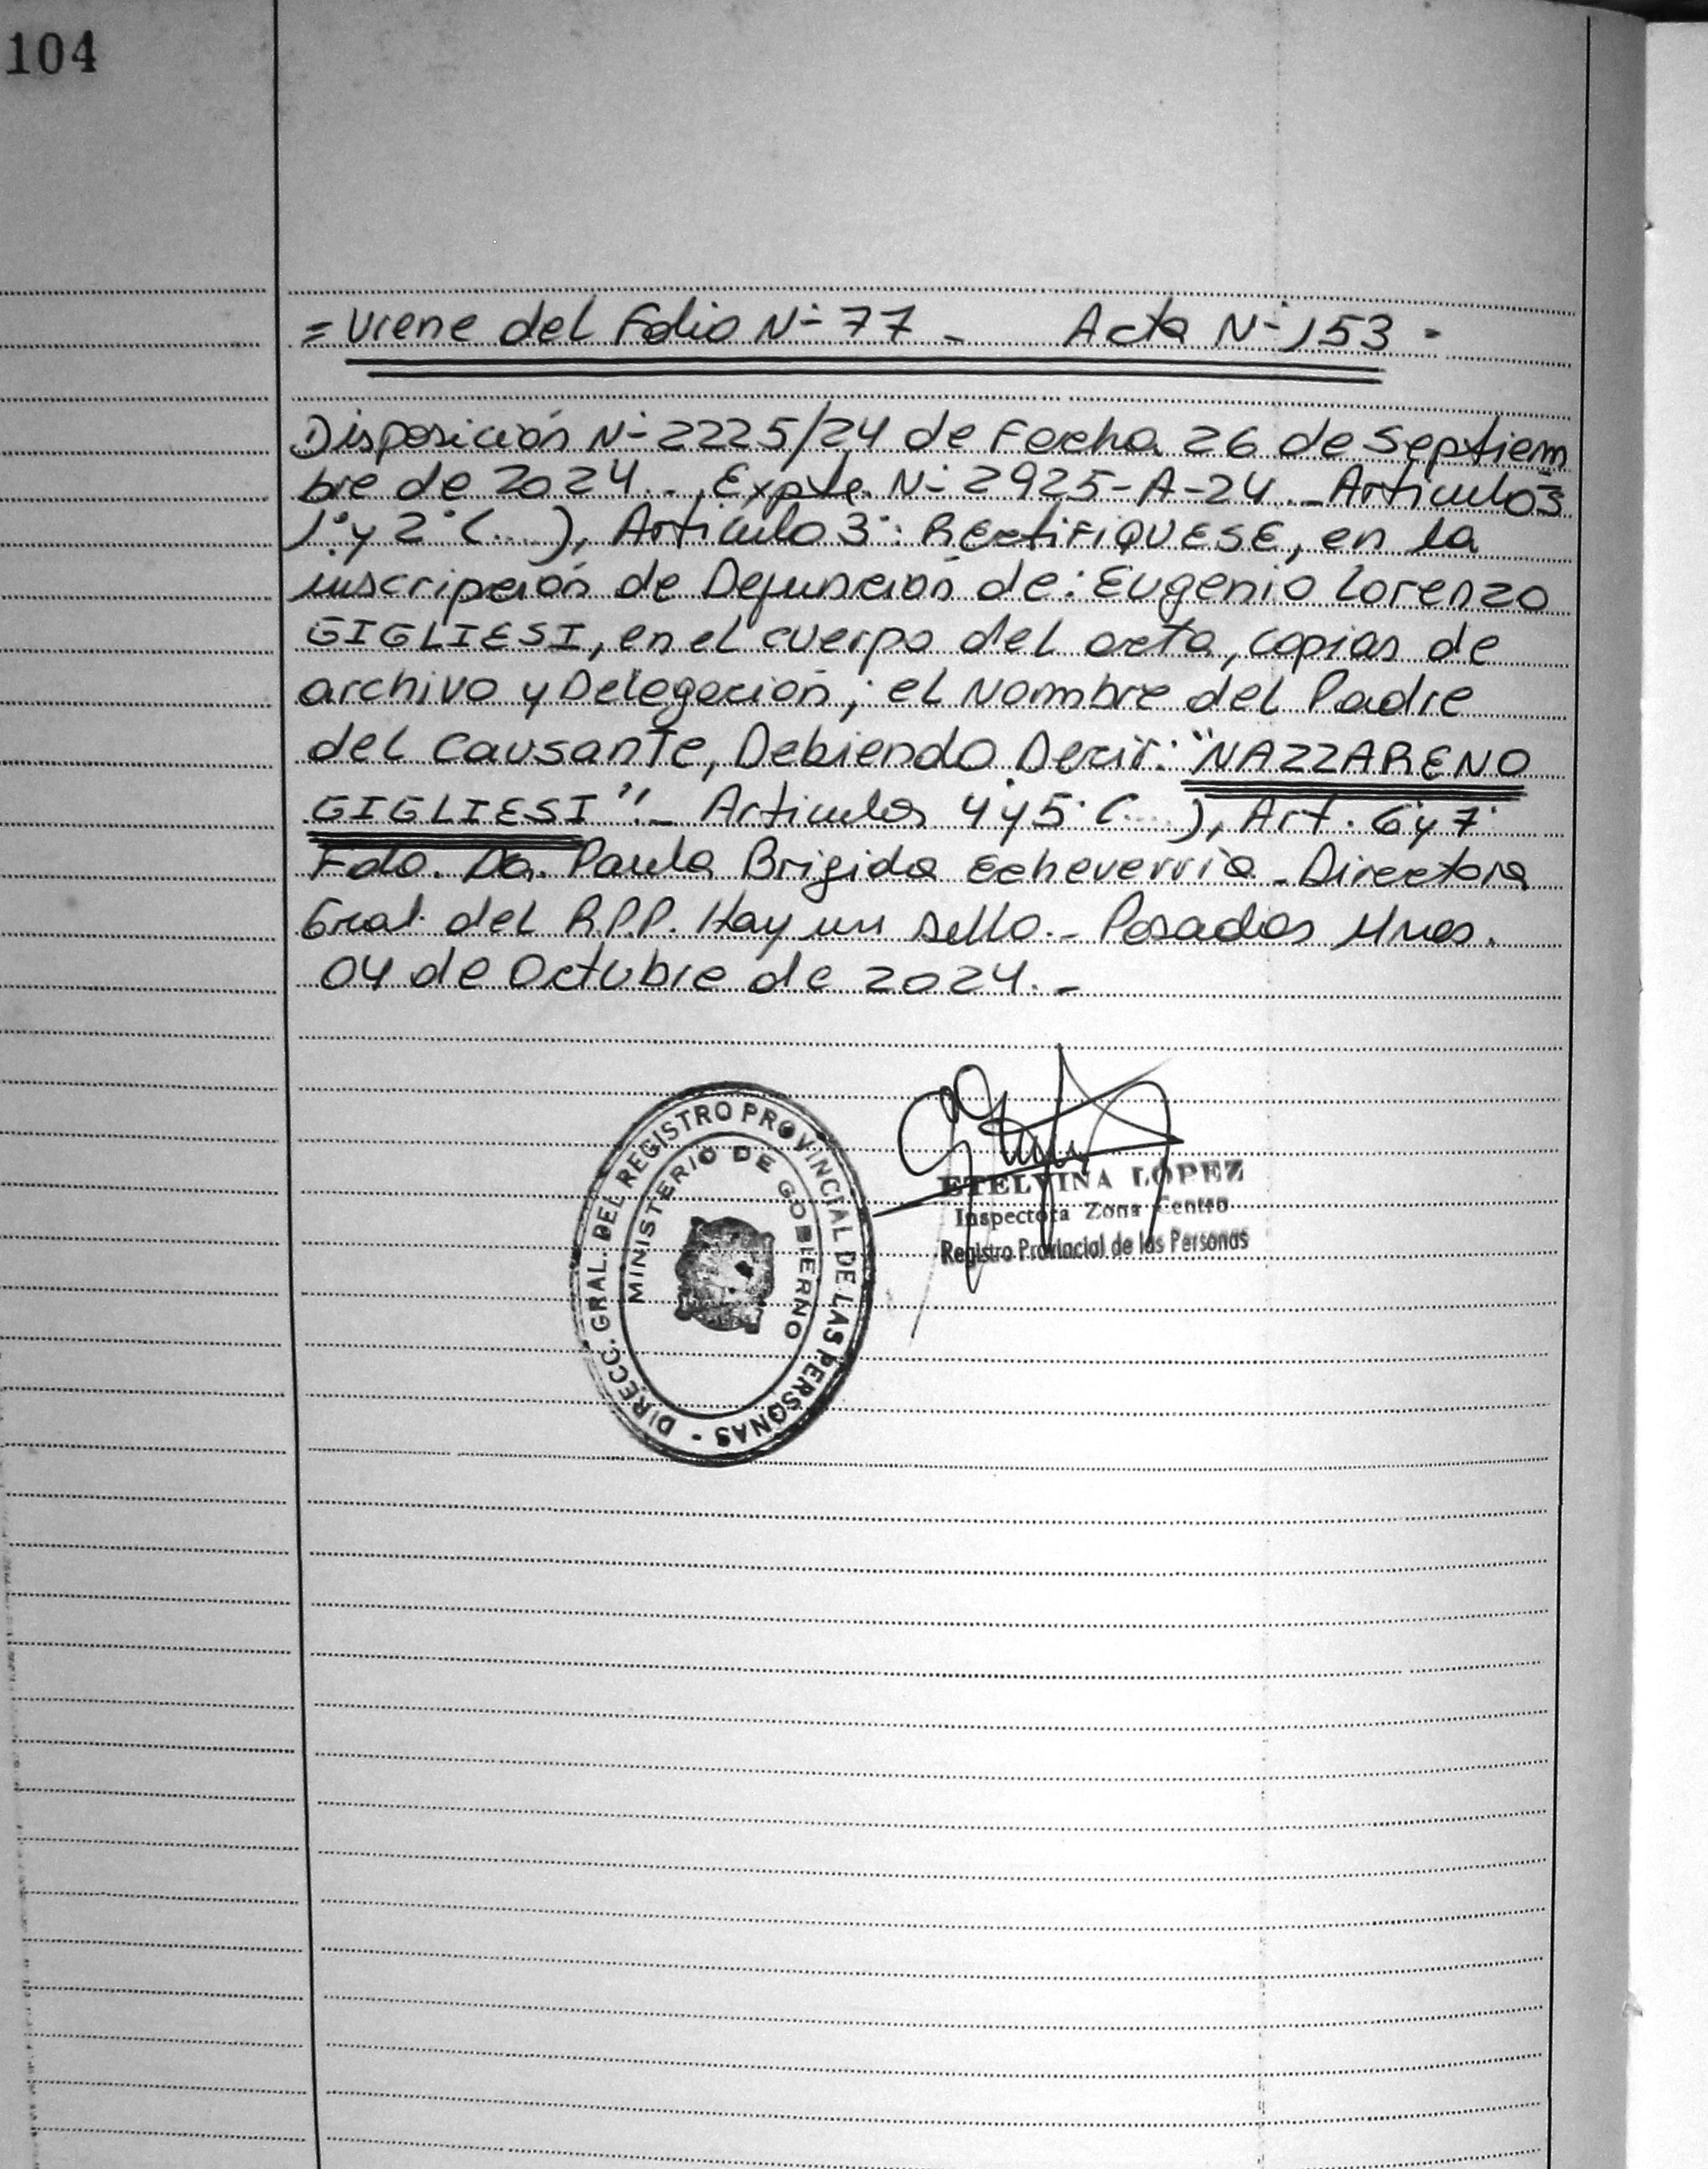 104
= Viene del Folio N° 77 - Acta N° 153 -
Disposición N° 2225/24 de Fecha 26 de Septiem
bre de 2024.-, Expte. N° 2925-A-24.- Artículos
1° y 2° (...), Artículo 3°: RectIFIQUESE, en la
inscripción de Defunción de: Eugenio Lorenzo
GIGLIESI, en el cuerpo del acta, copias de
archivo y Delegación; el Nombre del Padre
del Causante, Debiendo Decir: "NAZZARENO
GIGLIESI".- Artículos 4 y 5° (...), Art. 6 y 7°
Fdo. Da. Paula Brigida Echeverria - Directora
Gral. del R.P.P. Hay un sello.- Posadas Mnes.
04 de Octubre de 2024.-
DIRECC. GRAL. DEL REGISTRO PROVINCIAL DE LAS PERSONAS -
MINISTERIO DE GOBIERNO
ETELVINA LOPEZ
Inspectora Zona Centro
Registro Provincial de las Personas